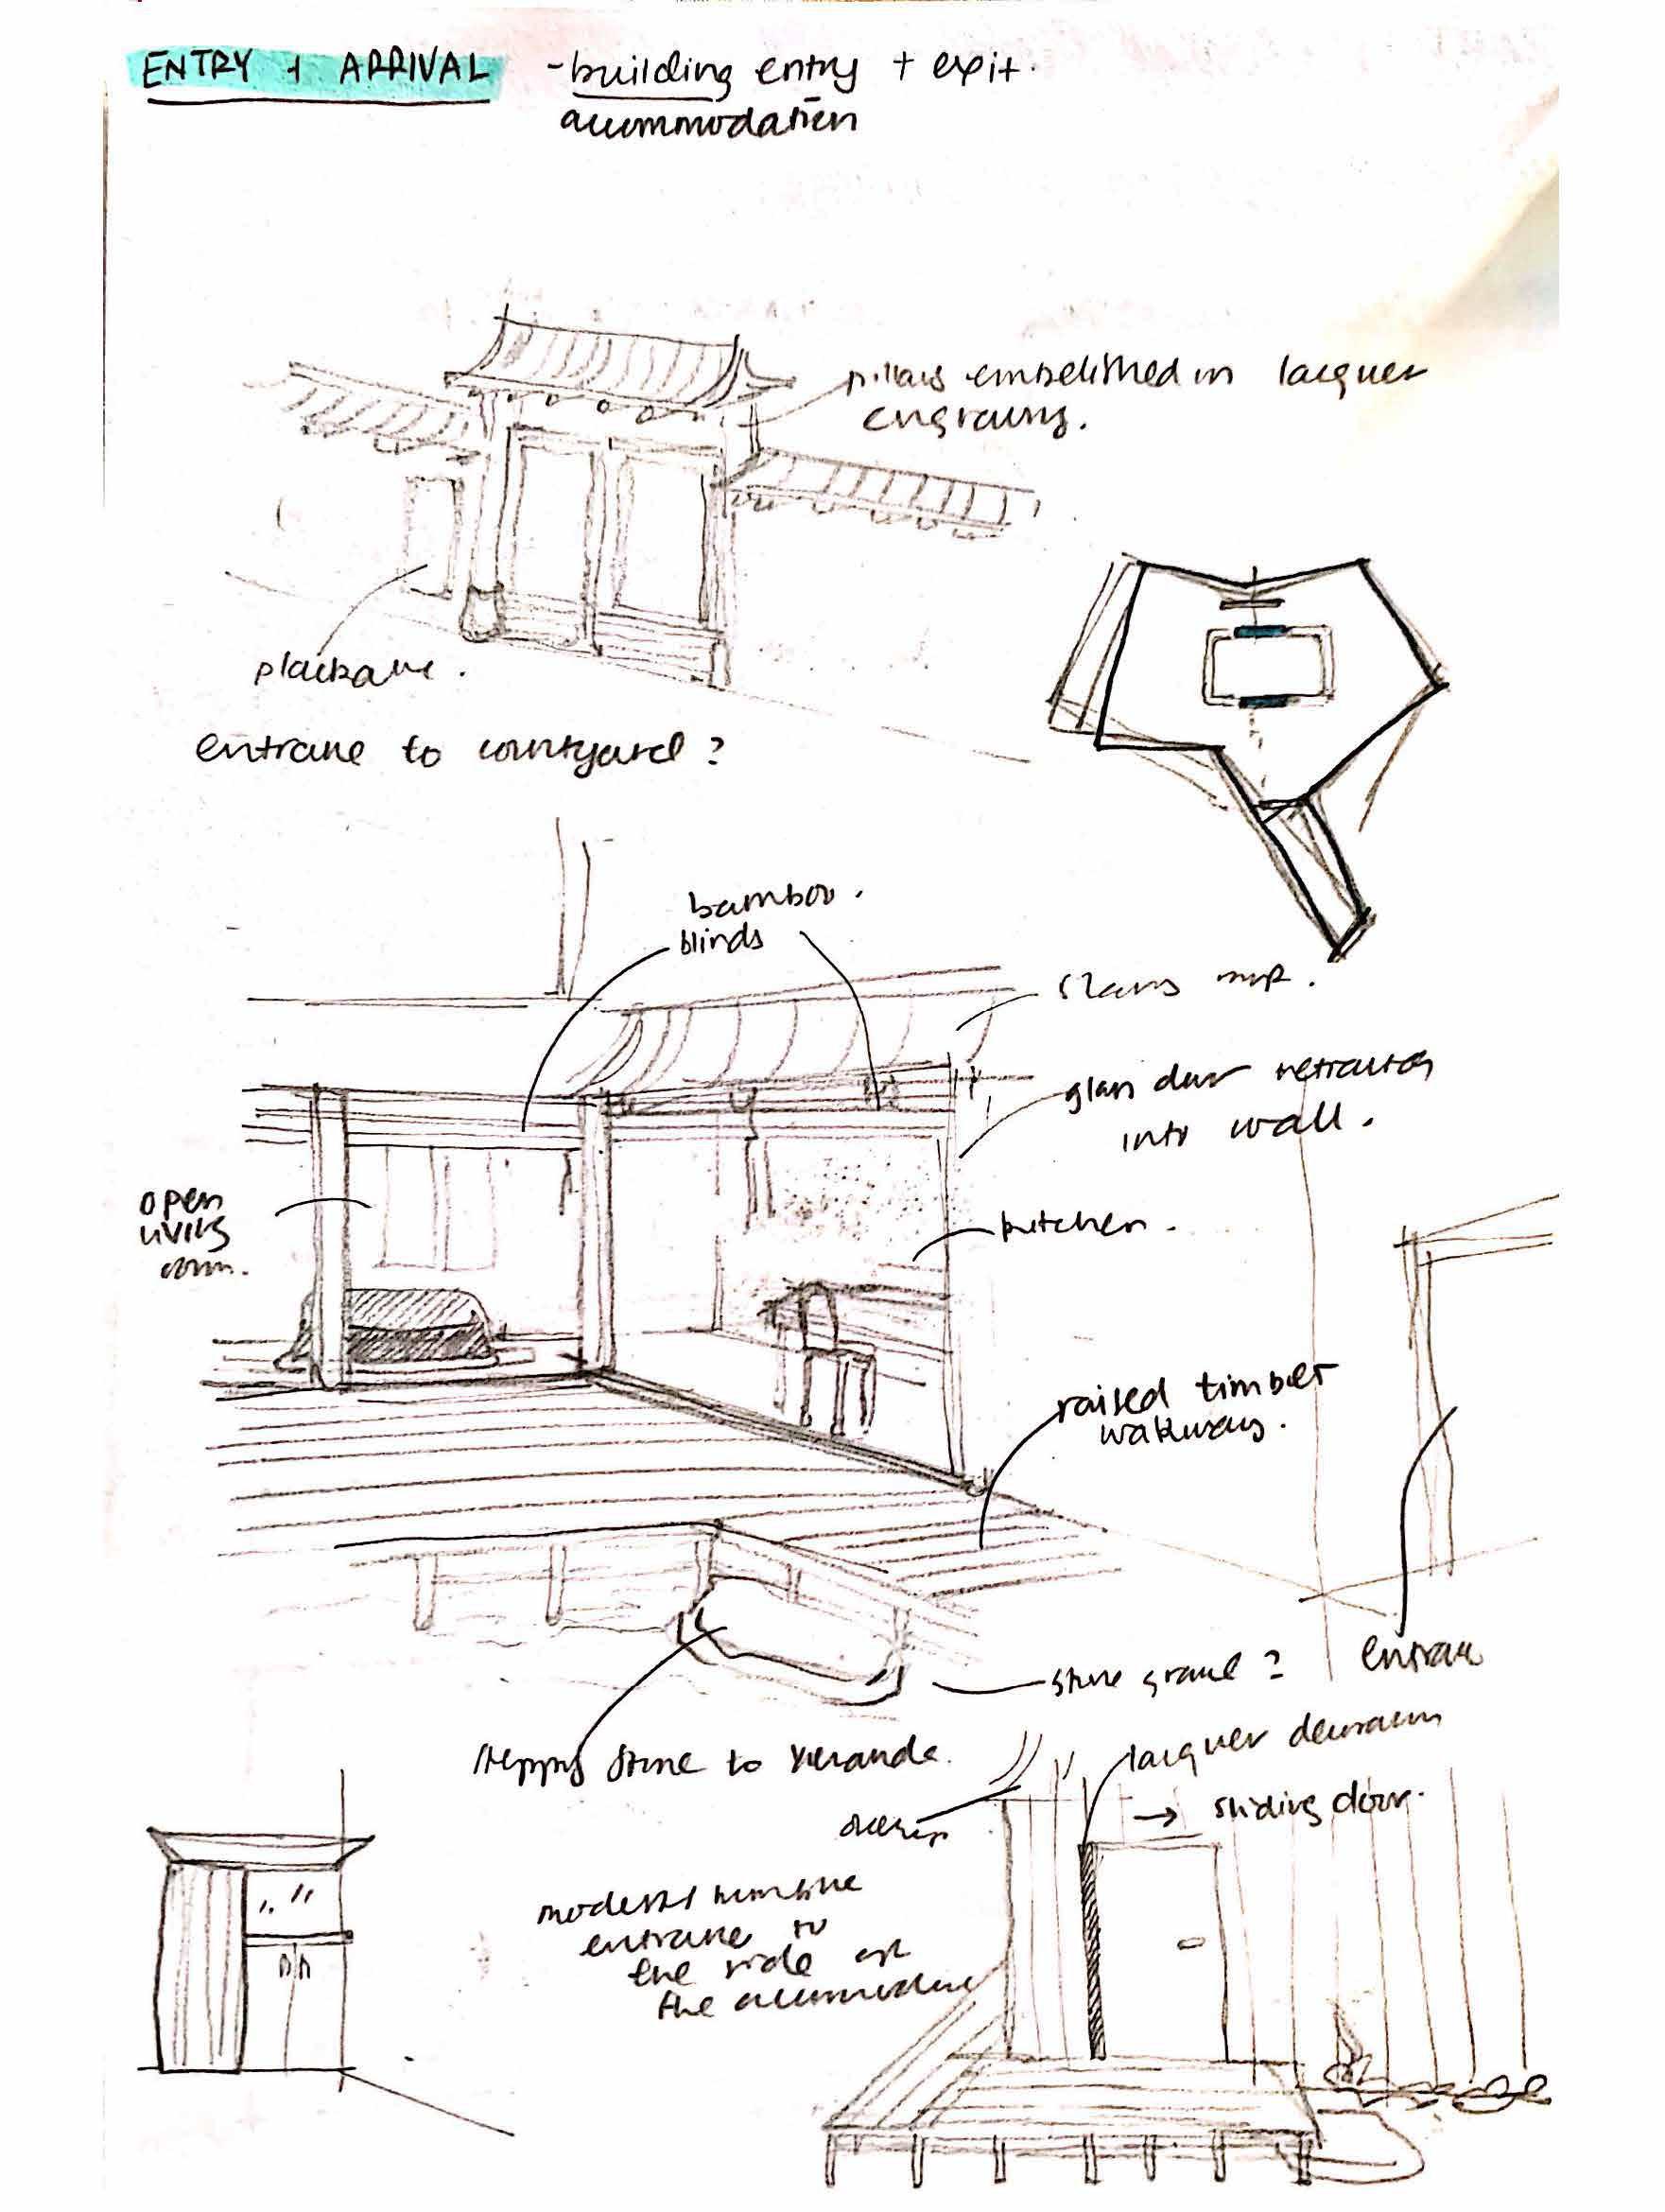 ENTRY + ARRIVAL
- building entry + exit.
accommodation
pillars embellished in lacquer
engraving.
plackard.
entrance to courtyard?
bamboo.
blinds
glass door retracts
into wall.
open
living
room.
kitchen.
raised timber
walkways.
entrance
stone gravel?
stepping stone to veranda.
lacquer
→ sliding door.
modest
entrance to
the side of
the accommodation